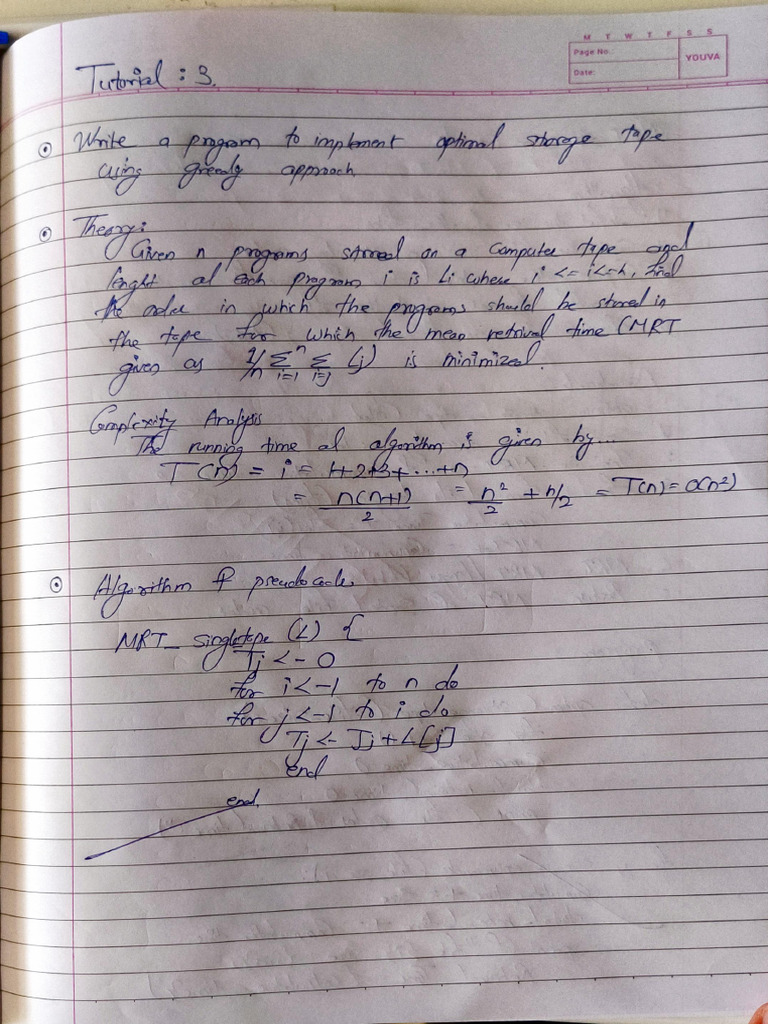 M T W T F S S
Page No.:
Date:
YOUVA
Tutorial : 3.
Write a program to implement optimal storage tape
using greedy approach.
Theory:
Given n programs stored on a computer tape and
lenght of each program i is Li where i <= i<=n, find
the order in which the programs should be stored in
the tape for which the mean retrival time (MRT
given as 1/n Σ i=1 n Σ i=j (j) is minimized.
Complexity Analysis
The running time of algorithm is given by...
T(n) = i = 1+2+3+...+n
= n(n+1)/2 = n²/2 + n/2 = T(n) = O(n²)
Algorithm & pseudocode.
MRT_ singletape (L) {
Tj <- 0
for i <- 1 to n do
for j <- 1 to i do
Tj <- Tj + L[j]
end
end.